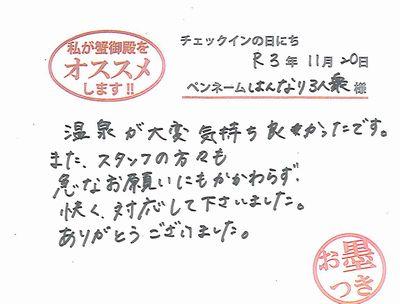 私が蟹御殿を
オススメ
します!!
チェックインの日にち
R3年 11月 20日
ペンネーム はんなり3人衆 様
温泉が大変気持ち良かったです。
また、スタッフの方々も
急なお願いにもかかわらず、
快く、対応して下さいました。
ありがとうございました。
お墨
つき